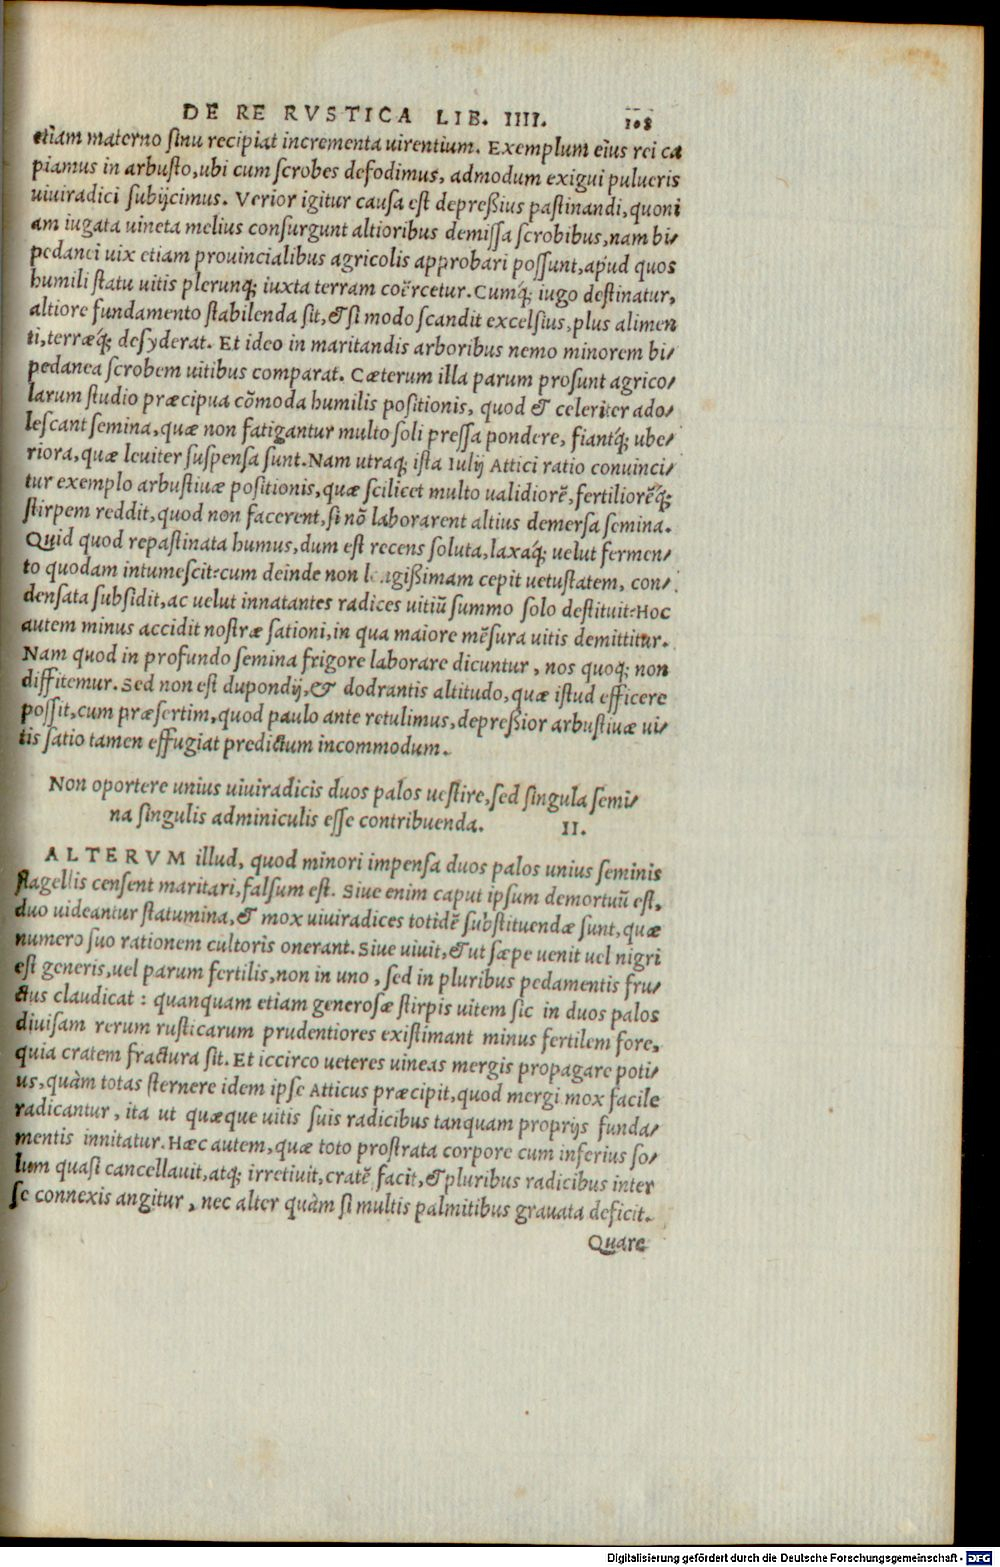 DE RE RVSTICA LIB. IIII. 108
etiam materno sinu recipiat incrementa uirentium. Exemplum eius rei ca
piamus in arbusto, ubi cum scrobes defodimus, admodum exigui pulueris
uiuiradici subijcimus. Verior igitur causa est depreßius pastinandi, quoni
am iugata uineta melius consurgunt altioribus demissa scrobibus, nam bi/
pedanei uix etiam prouincialibus agricolis approbari possunt, apud quos
humili statu uitis plerunq; iuxta terram coërcetur. Cumq́; iugo destinatur,
altiore fundamento stabilenda sit, & si modo scandit excelsius, plus alimen
ti, terræq́; desyderat. Et ideo in maritandis arboribus nemo minorem bi/
pedanea scrobem uitibus comparat. Cæterum illa parum prosunt agrico/
larum studio præcipua cõmoda humilis positionis, quod & celeriter ado/
lescant semina, quæ non fatigantur multo soli pressa pondere, fiantq́; ube/
riora, quæ leuiter suspensa sunt. Nam utraq; ista Iulij Attici ratio conuinci/
tur exemplo arbustiuæ positionis, quæ scilicet multo ualidiorẽ, fertiliorẽq́;
stirpem reddit, quod non facerent, si nõ laborarent altius demersa semina.
Quid quod repastinata humus, dum est recens soluta, laxaq́; uelut fermen/
to quodam intumescit: cum deinde non longißimam cepit uetustatem, con/
densata subsidit, ac uelut innatantes radices uitiũ summo solo destituit: Hoc
autem minus accidit nostræ sationi, in qua maiore mẽsura uitis demittitur.
Nam quod in profundo semina frigore laborare dicuntur, nos quoq; non
diffitemur. Sed non est dupondij, & dodrantis altitudo, quæ istud efficere
possit, cum præsertim, quod paulo ante retulimus, depreßior arbustiuæ ui/
tis satio tamen effugiat predictum incommodum.
Non oportere unius uiuiradicis duos palos uestire, sed singula semi/
na singulis adminiculis esse contribuenda. II.
ALTERVM illud, quod minori impensa duos palos unius seminis
flagellis censent maritari, falsum est. Siue enim caput ipsum demortuũ est,
duo uideantur statumina, & mox uiuiradices totidẽ substituendæ sunt, quæ
numero suo rationem cultoris onerant. Siue uiuit, & ut sæpe uenit uel nigri
est generis, uel parum fertilis, non in uno, sed in pluribus pedamentis fru/
ctus claudicat: quanquam etiam generosæ stirpis uitem sic in duos palos
diuisam rerum rusticarum prudentiores existimant minus fertilem fore,
quia cratem fractura sit. Et iccirco ueteres uineas mergis propagare poti/
us, quàm totas sternere idem ipse Atticus præcipit, quod mergi mox facile
radicantur, ita ut quæque uitis suis radicibus tanquam proprijs funda/
mentis innitatur. Hæc autem, quæ toto prostrata corpore cum inferius so/
lum quasi cancellauit, atq; irretiuit, cratẽ facit, & pluribus radicibus inter
se connexis angitur, nec alter quàm si multis palmitibus grauata deficit.
Quare
Digitalisierung gefördert durch die Deutsche Forschungsgemeinschaft - DFG